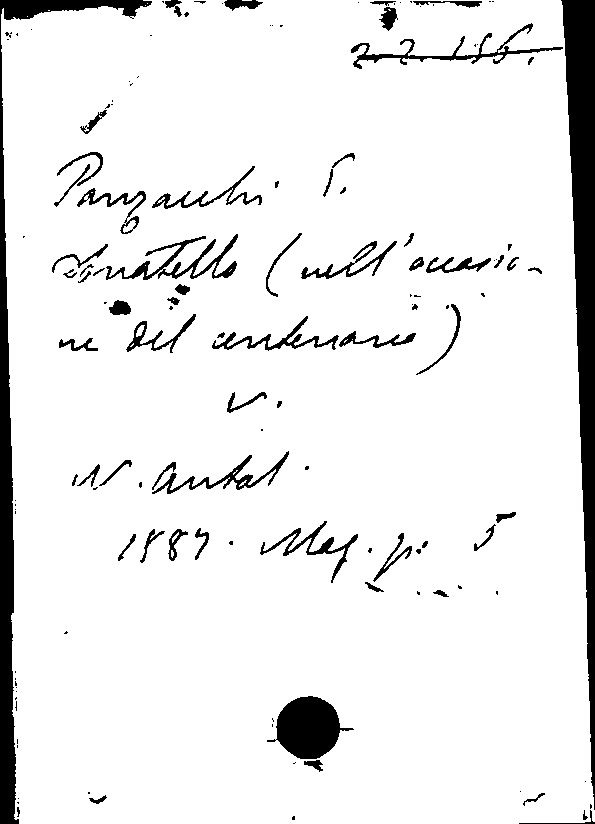 2. 2. 156.
Panzacchi E.
Donatello (nell'occasio-
ne del centenario)
V.
N. Antol.
1887. Mag. p. 5